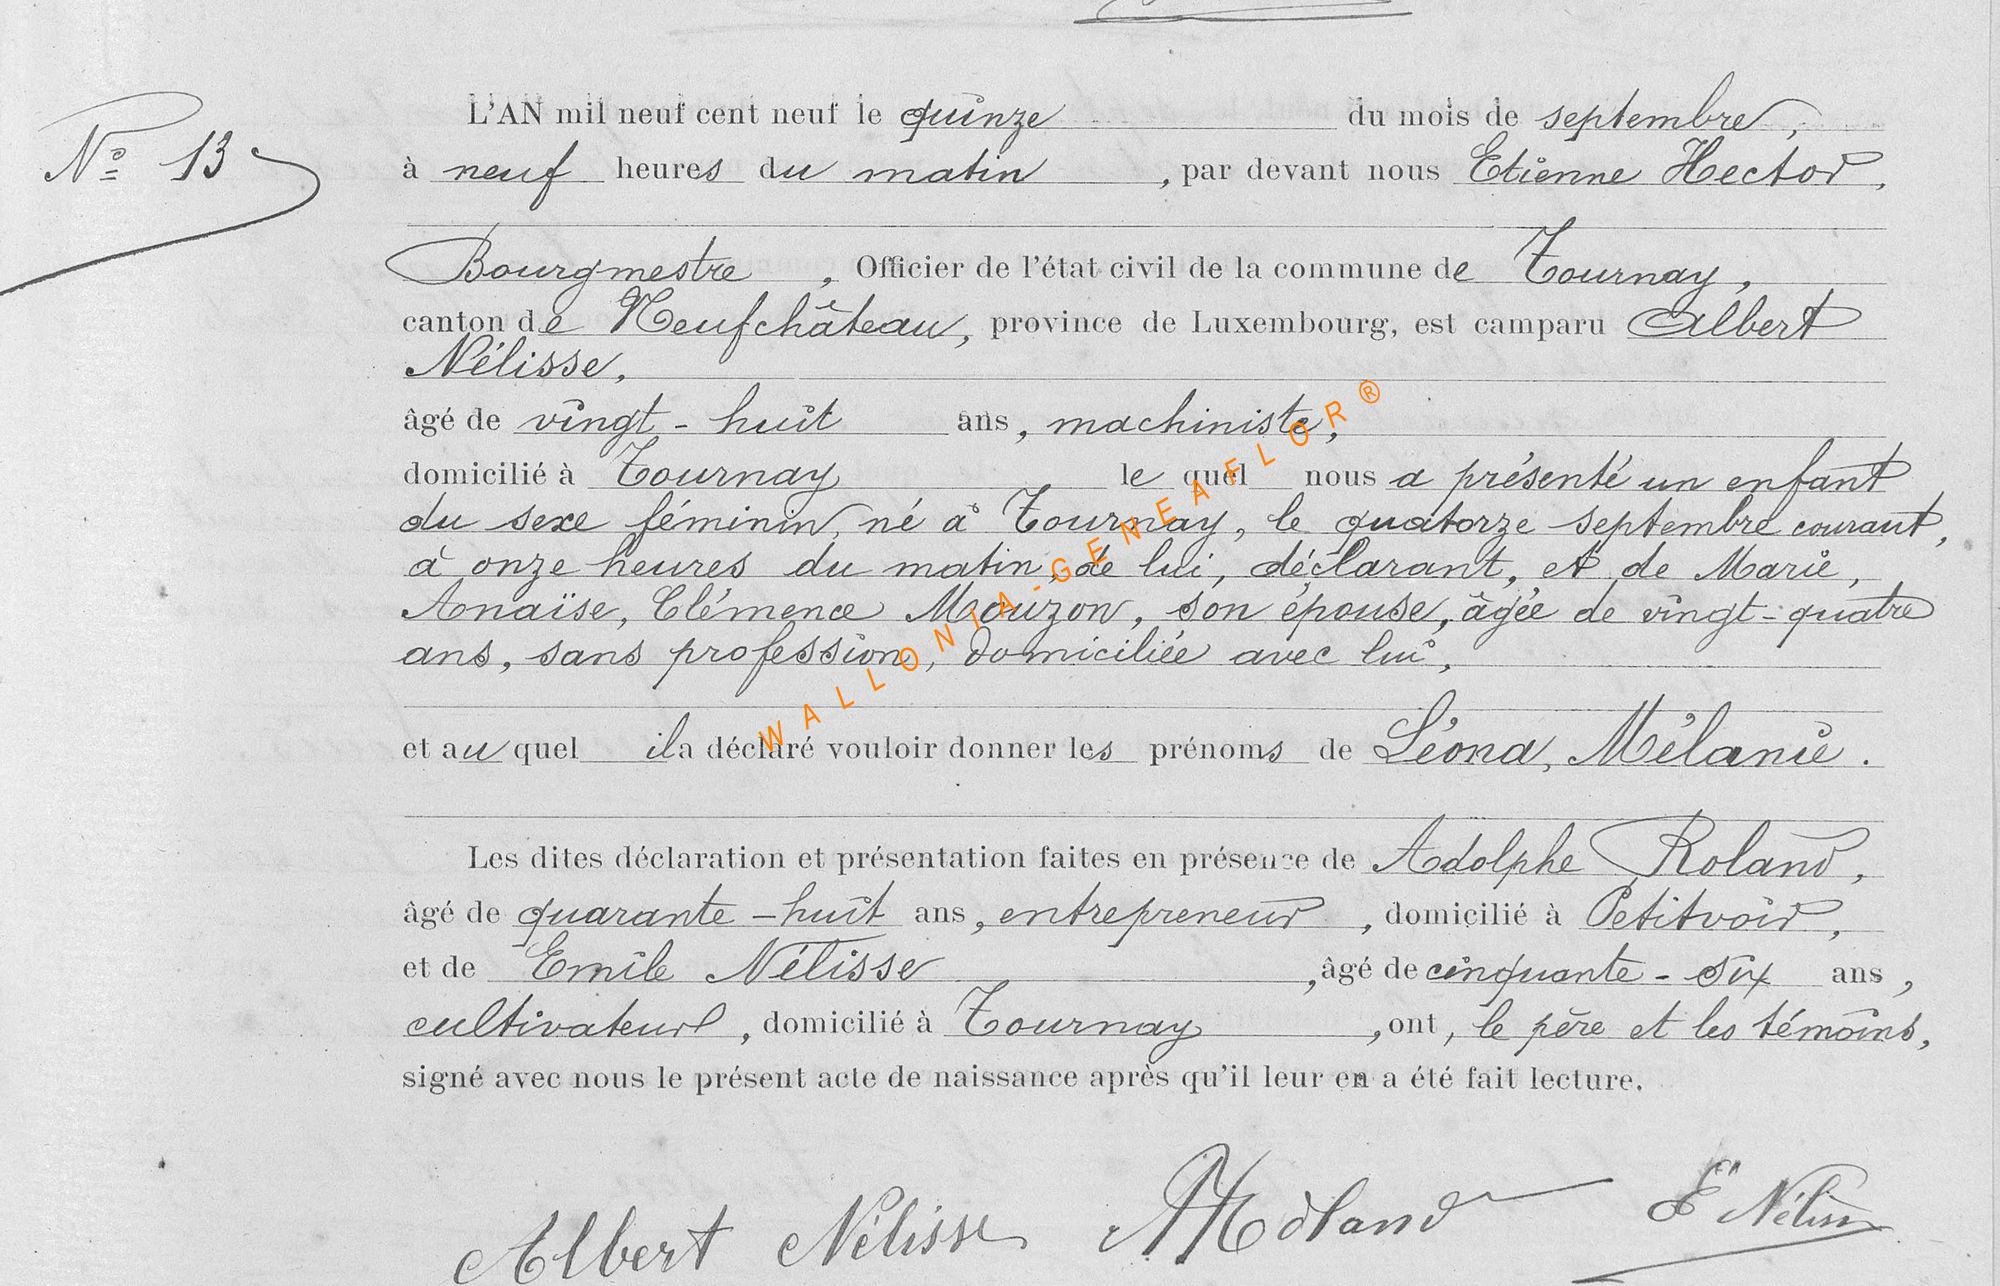 L'AN mil neuf cent neuf le quinze du mois de septembre,
Nº 13
à neuf heures du matin, par devant nous Etienne Hector,
Bourgmestre, Officier de l'état civil de la commune de Tournay,
canton de Neufchâteau, province de Luxembourg, est camparu Albert
Nélisse,
âgé de vingt-huit ans, machiniste,
domicilié à Tournay le quel nous a présenté un enfant
du sexe féminin, né à Tournay, le quatorze septembre courant,
à onze heures du matin, de lui, déclarant, et de Marie,
Anaïse, Clémence Mouzon, son épouse, âgée de vingt-quatre
ans, sans profession, domiciliée avec lui,
et au quel il a déclaré vouloir donner les prénoms de Léona, Mélanie.
Les dites déclaration et présentation faites en présence de Adolphe Roland,
âgé de quarante-huit ans, entrepreneur, domicilié à Petitvoir,
et de Emile Nélisse, âgé de cinquante-six ans,
cultivateur, domicilié à Tournay, ont, le père et les témoins,
signé avec nous le présent acte de naissance après qu'il leur en a été fait lecture.
Albert Nélisse A Roland E Nélisse
WALLONIA-GENEAFLOR®